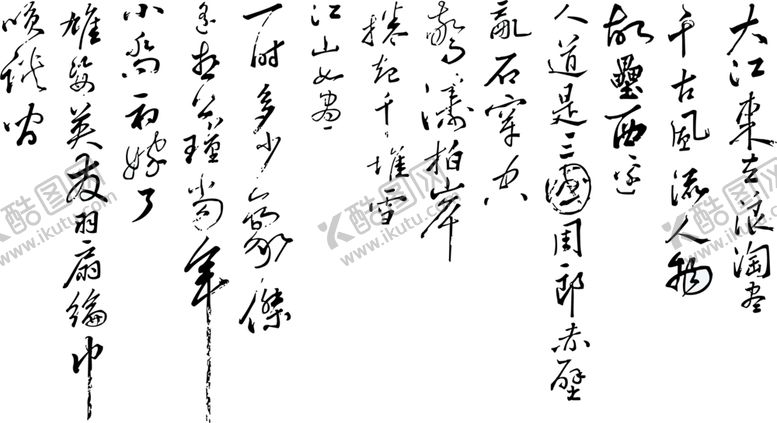 大江東去浪淘盡
千古風流人物
故壘西邊
人道是三國周郎赤壁
亂石穿空
驚濤拍岸
捲起千堆雪
江山如畫
一时多少豪傑
遙想公瑾當年
小喬初嫁了
雄姿英發羽扇綸巾
咲談間
酷图网
www.ikutu.com
酷图网
www.ikutu.com
酷图网
www.ikutu.com